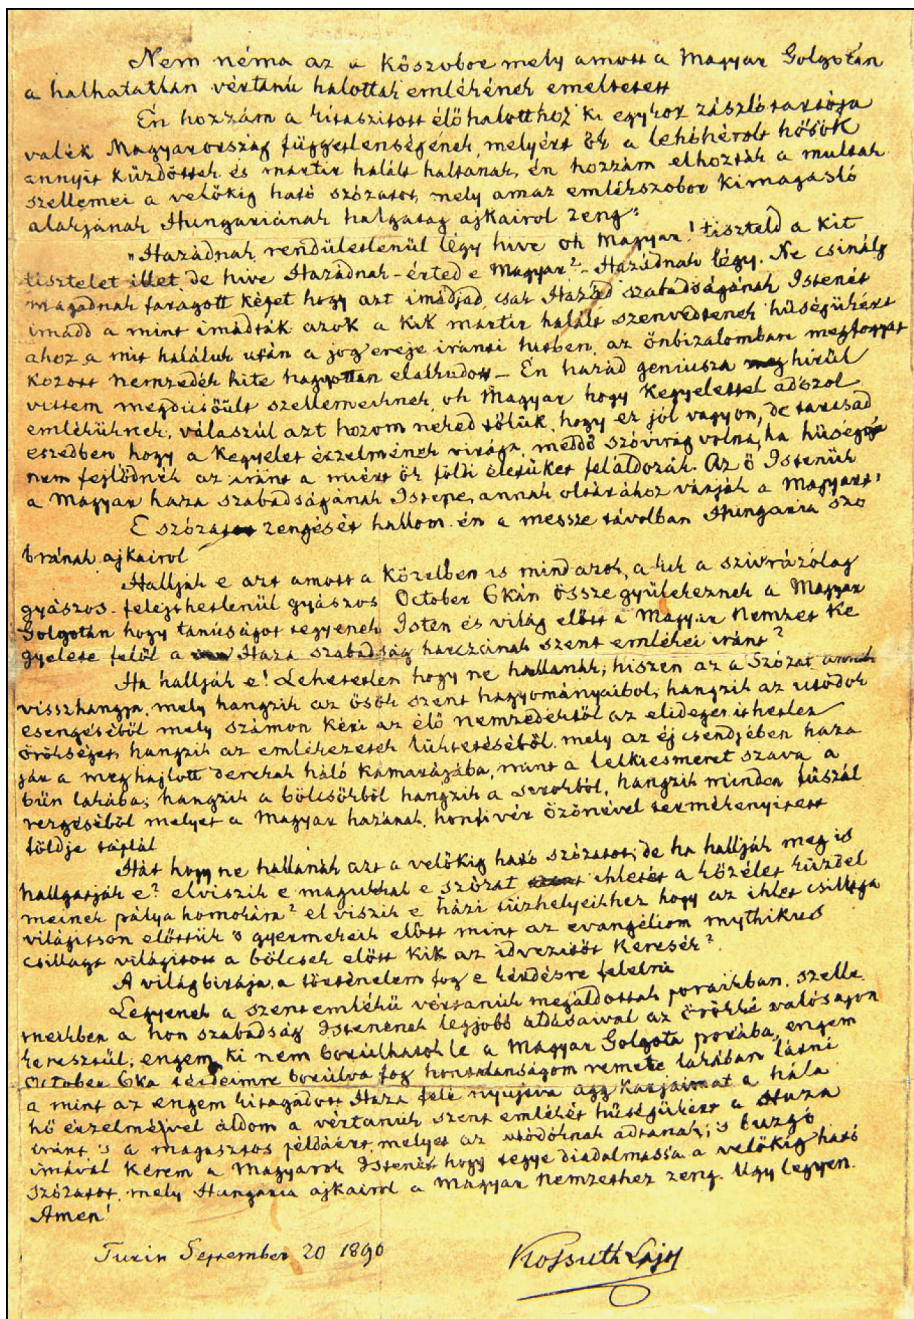 Nem néma az a kőszobor mely amott a Magyar Golgotán
a halhatatlan vértanú halottak emlékének emeltetett
Én hozzám a kitaszitott élő halotthoz ki egykor zászlótartója
valék Magyarország függetlenségének, melyért ők a lehóhérolt hősök
annyit küzdöttek és mártir halált haltanak, én hozzám elhozták a multak
szellemei a velőkig ható szózatot, mely amaz emlékszobor kimagasló
alakjának Hungáriának halgatag ajkairol zeng:
"Hazádnak rendületlenül légy hive oh Magyar! tiszteld a kit
tisztelet illet, de hive Hazádnak - érted e Magyar? - Hazádnak légy. Ne csinálj
magadnak faragott képet hogy azt imádjad, csak Hazád szabadságának Istenét
imádd a mint imádták azok a kik mártir halált szenvedtenek hűségükért
ahoz a mit haláluk után a jog ereje iránti hitben, az önbizalomban megfogyat
kozott nemzedék hite hagyottan elaludott - Én hazád geniusza hirül
vittem megdicsőült szellemeiknek, oh Magyar hogy kegyelettel adózol
emléküknek, válaszúl azt hozom neked tőlük, hogy ez jól vagyon, de tartsad
eszedben hogy a kegyelet érzelmének virága, meddő szóvirág volna, ha hűséggé
nem fejlődnék az iránt a miért ők földi életüket feláldozák. Az ő Istenük
a Magyar haza szabadságának Istene, annak oltárához várják a Magyart"
E szózatot zengését hallom én a messze távolban Hungária szo
brának ajkairol
Hallják e azt amott a közelben is mind azok, a kik a szivrázólag
gyászos - felejthetlenül gyászos October 6kán össze gyülekeznek a Magyar
Golgotán hogy tanúságot tegyenek Isten és világ előtt a Magyar Nemzet ke
gyelete felől a Haza szabadság harczának szent emlékei iránt?
Ha hallják e! Lehetetlen hogy ne hallanák; hiszen az a Szózat annak
visszhangja, mely hangzik az ősök szent hagyományaibol; hangzik az utódok
esengéséből mely számon kéri az élő nemzedéktől az elidegenithetlen
örökséget, hangzik az emlékezetek lüktetéséből, mely az éj csendjében haza
jár a meghajlott derekak háló kamarájába, mint a lelkiesmeret szava a
bűn lakába; hangzik a bölcsőkből hangzik a sirokból, hangzik minden fűszál
rezgéséből melyet a Magyar hazának honfivér özönével termékenyitett
földje táplál
Hát hogy ne hallanák azt a velőkig ható szózatot; de ha hallják meg is
hallgatják e? elviszik e magukkal e szózat ihletét a közélet küzdel
meinek pálya homokára? el viszik e házi tűzhelyeikhez hogy az ihlet csillaga
világitson előttük 's gyermekeik előtt mint az evangéliom mythikus
csillaga világitott a bölcsek előtt kik az idvezitőt keresék?
A világbirája, a történelem fog e kérdésre felelni
Legyenek a szentemlékű vértanúk megáldottak poraikban, szelle
meikben a hon szabadság Istenének legjobb áldásaival az örökké valóságon
keresztűl; engem, ki nem borúlhatok le a Magyar Golgota porába, engem
October 6ka térdeimre borúlva fog hontalanságom remete lakában látni
a mint az engem kitagadott Haza felé nyujtva agg karjaimat a hála
hő érzelmével áldom a vértanúk szent emlékét hűségükért a Haza
iránt, 's a magasztos példáért, melyet az utódoknak adtanak; 's buzgó
imával kérem a Magyarok Istenét hogy tegye diadalmassá a velőkig ható
szózatot, mely Hungária ajkairol a Magyar Nemzethez zeng. Ugy legyen.
Amen!
Turin September 20 1890
Kossuth Lajos